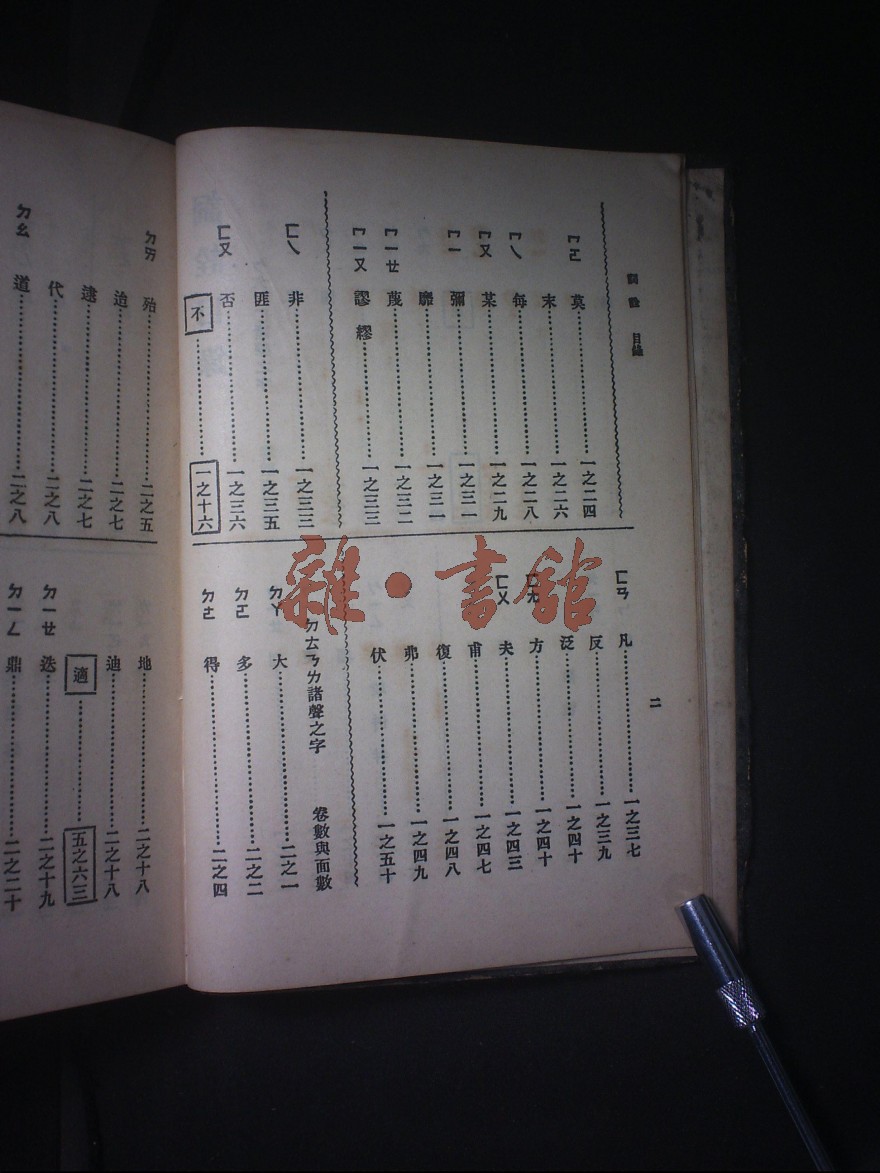 詞詮 目錄
二
ㄇㄛ 莫 一之二四
末 一之二六
ㄇㄟ 每 一之二八
ㄇㄡ 某 一之二九
ㄇㄧ 彌 一之三一
靡 一之三一
ㄇㄧㄝ 蔑 一之三二
ㄇㄧㄡ 謬 繆 一之三三
ㄈㄟ 非 一之三三
匪 一之三五
ㄈㄡ 否 一之三六
不 一之十六
ㄈㄢ 凡 一之三七
反 一之三九
泛 一之四十
ㄈㄤ 方 一之四十
ㄈㄨ 夫 一之四三
甫 一之四七
復 一之四八
弗 一之四九
伏 一之五十
ㄉㄊㄋㄌ諸聲之字 卷數與面數
ㄉㄚ 大 二之一
ㄉㄛ 多 二之二
ㄉㄜ 得 二之四
ㄉㄞ 殆 二之五
迨 二之七
逮 二之七
代 二之八
ㄉㄠ 道 二之八
地 二之十八
迪 二之十八
適 五之六三
ㄉㄧㄝ 迭 二之十九
ㄉㄧㄥ 鼎 二之二十
雜·書館